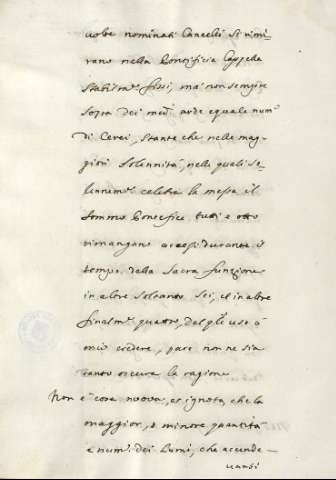 volte nominati Cancelli si rimi-
rano nella Pontificia Cappella
stabilmte fissi, mà non sempre
sopra dei medmi arde equale numo
di Cerei, stante che nelle mag-
giori solennità, nelle quali so-
lennemte celebra la messa il
sommo Pontefice tutti e otto
rimangano accesi durante il
tempo della sacra funzione
in altre soltanto sei, et in altre
finalmte quattro, del qle uso à
mio credere, pare non ne sia
tanto oscura la ragione
Non è cosa nuova, et ignota, che la
maggior, ò minore quantità
e numo dei Lumi, che accende-
vansi